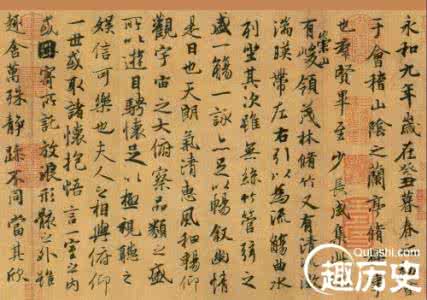 永和九年歲在癸丑暮春
于會稽山陰之蘭亭脩稧事
也群賢畢至少長咸集此
崇山
有峻領茂林脩竹又有清流激
湍暎帶左右引以為流觴曲水
列坐其次雖無絲竹管弦之
盛一觴一詠亦足以暢叙幽情
是日也天朗氣清惠風和暢仰
觀宇宙之大俯察品類之盛
所以遊目騁懷足以極視聽之
娛信可樂也夫人之相與俯仰
一世或取諸懷抱悟言一室之內
或因寄所託放浪形骸之外雖
趣舍萬殊靜躁不同當其欣
QuLiShi.com
趣历史